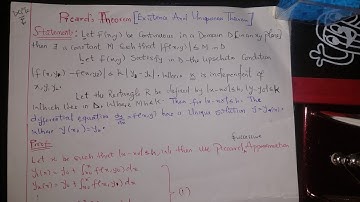 Picard's Theorem [Existence And Uniqueness Theorem]
Statement: Let f(x,y) be Continuous in a Domain D [in an xy plane]
then ∃ a constant M such that |f(x,y)| ≤ M in D
Let f(x,y) Satisfy in D the Lipschitz Condition
|f(x,y₁) - f(x,y₂)| ≤ k |y₁-y₂| where is independent of
x, y,
Let the Rectangle R be defined by |x-x₀| ≤ h, |y-y₀| ≤ k
Which lies in D, where Mh<k. Then for |x-x₀| ≤ h The
differential equation dy/dx = f(x,y) has a Unique solution y = y(x)
where y(x₀) = y₀.
Proof
Let x be such that |x-x₀| ≤ h, We then use Piccard Approximation
y₁(x) = y₀ + ∫ f(x,y₀) dx
y₂(x) = y₀ + ∫ f(x,y₁) dx
(1)